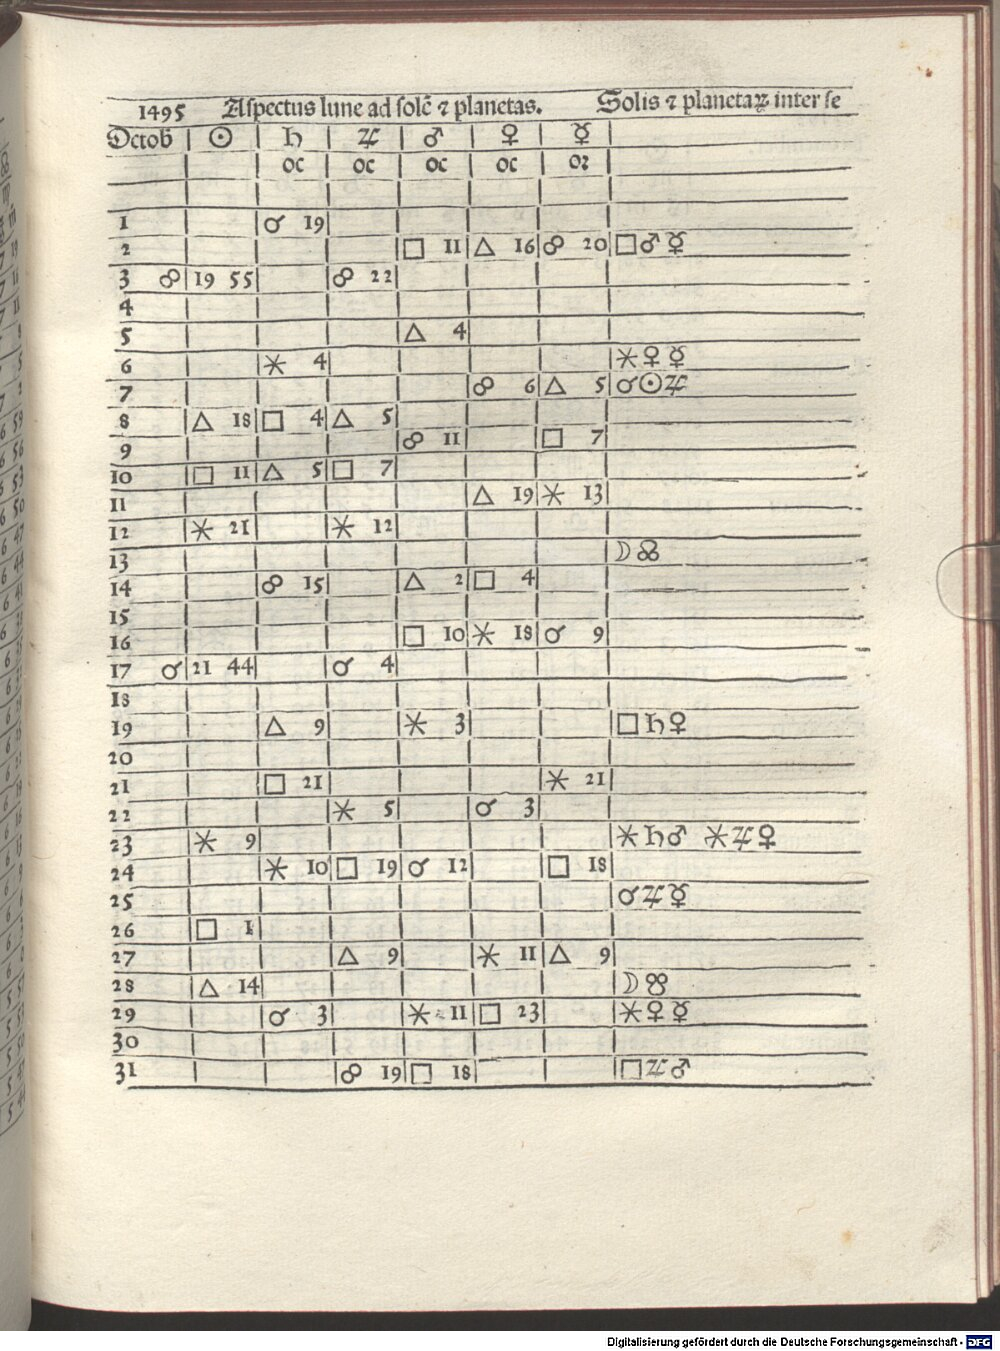 1495 Aspectus lune ad solē ⁊ planetas. Solis ⁊ planetaꝝ inter se
Octob̄ ☉ ♄ ♃ ♂ ♀ ☿
oc oc oc oc oꝛ
1 ☌ 19
2 □ 11 △ 16 ☍ 20 □ ♂ ☿
3 ☍ 19 55 ☍ 22
4
5 △ 4
6 ⚹ 4 ⚹ ♀ ☿
7 ☍ 6 △ 5 ☌ ☉ ♃
8 △ 18 □ 4 △ 5
9 ☍ 11 □ 7
10 □ 11 △ 5 □ 7
11 △ 19 ⚹ 13
12 ⚹ 21 ⚹ 12
13 ☽ ☊
14 ☍ 15 △ 2 □ 4
15
16 □ 10 ⚹ 18 ☌ 9
17 ☌ 21 44 ☌ 4
18
19 △ 9 ⚹ 3 □ ♄ ♀
20
21 □ 21 ⚹ 21
22 ⚹ 5 ☌ 3
23 ⚹ 9 ⚹ ♄ ♂ ⚹ ♃ ♀
24 ⚹ 10 □ 19 ☌ 12 □ 18
25 ☌ ♃ ☿
26 □ 1
27 △ 9 ⚹ 11 △ 9
28 △ 14 ☽ ☋
29 ☌ 3 ⚹ 11 □ 23 ⚹ ♀ ☿
30
31 ☍ 19 □ 18 □ ♃ ♂
Digitalisierung gefördert durch die Deutsche Forschungsgemeinschaft - DFG